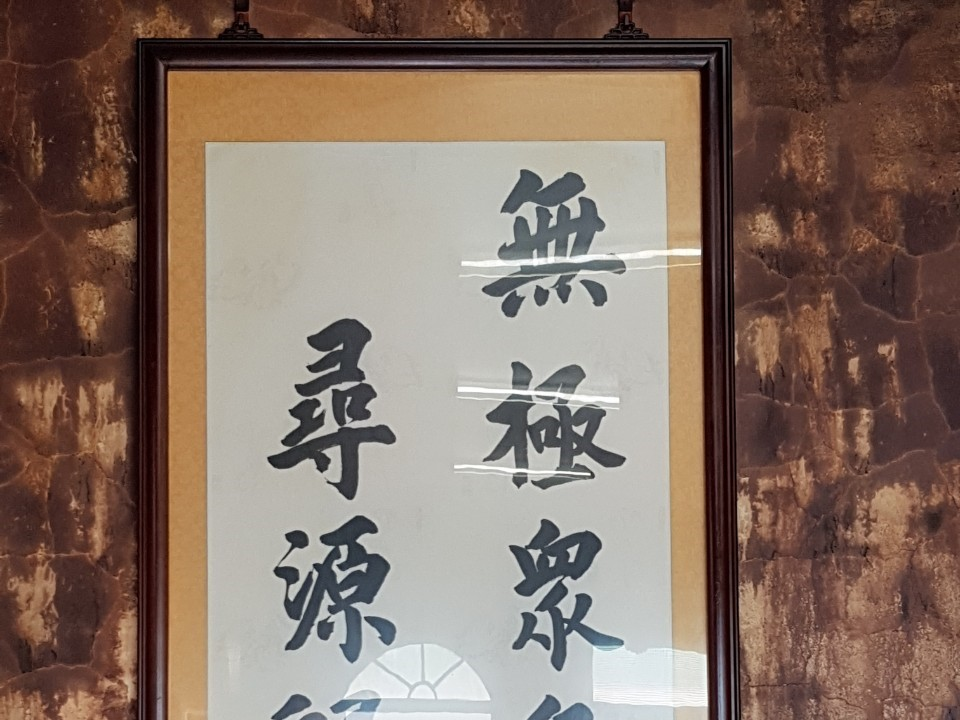 無極眾
尋源